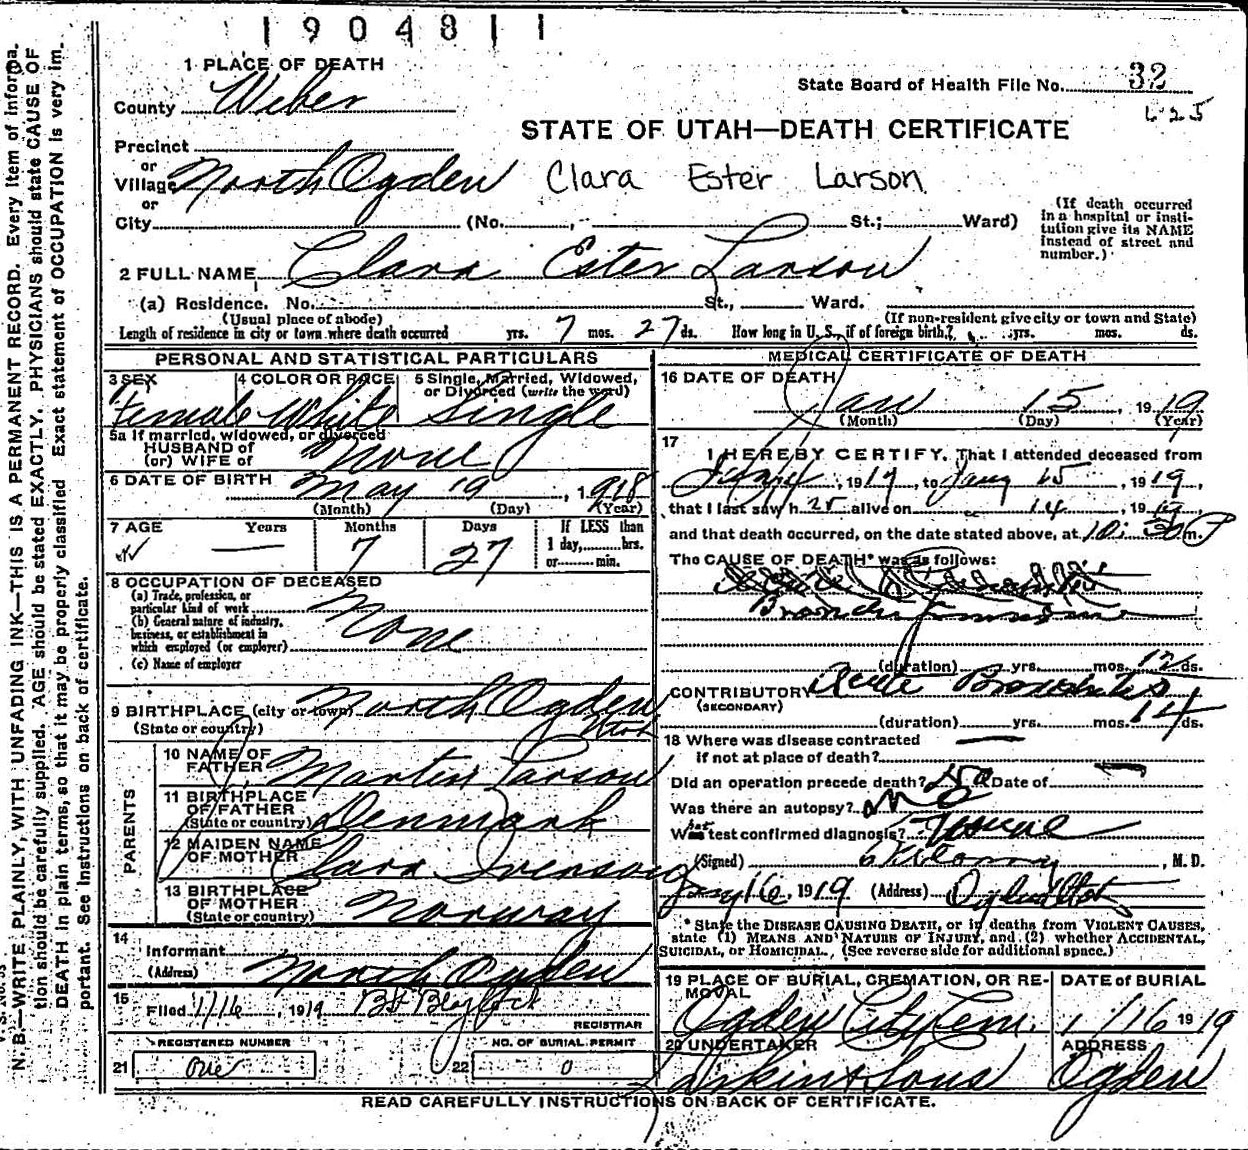 1904811
1 PLACE OF DEATH
State Board of Health File No. 32
County Weber
625
STATE OF UTAH—DEATH CERTIFICATE
Precinct
or
Village North Ogden Clara Ester Larson
or
City (No. St.; Ward)
(If death occurred in a hospital or institution give its NAME instead of street and number.)
2 FULL NAME Clara Ester Larson
(a) Residence. No. St., Ward.
(Usual place of abode) (If non-resident give city or town and State)
Length of residence in city or town where death occurred yrs. 7 mos. 27 ds. How long in U. S., if of foreign birth? yrs. mos. ds.
PERSONAL AND STATISTICAL PARTICULARS
3 SEX 4 COLOR OR RACE 5 Single, Married, Widowed, or Divorced (write the word)
Female White Single
5a If married, widowed, or divorced
HUSBAND of
(or) WIFE of None
6 DATE OF BIRTH May 19, 1918
(Month) (Day) (Year)
7 AGE Years Months Days If LESS than
— 7 27 1 day,......hrs.
or......min.
8 OCCUPATION OF DECEASED
(a) Trade, profession, or
particular kind of work
(b) General nature of industry,
business, or establishment in
which employed (or employer)
None
(c) Name of employer
9 BIRTHPLACE (city or town) North Ogden
(State or country) Utah
PARENTS
10 NAME OF
FATHER Martin Larson
11 BIRTHPLACE
OF FATHER
(State or country) Denmark
12 MAIDEN NAME
OF MOTHER Clara Ivenson
13 BIRTHPLACE
OF MOTHER
(State or country) Norway
14
Informant
(Address) North Ogden
15
Filed 1/16, 1919 Blaylock
REGISTRAR
REGISTERED NUMBER NO. OF BURIAL PERMIT
21 One 22 0
MEDICAL CERTIFICATE OF DEATH
16 DATE OF DEATH
Jan 15, 1919
(Month) (Day) (Year)
17
I HEREBY CERTIFY, That I attended deceased from
, 1919, to Jany 15, 1919,
that I last saw her alive on " 14, 1919
and that death occurred, on the date stated above, at 10:30 P m.
The CAUSE OF DEATH* was as follows:
(duration) yrs. mos. 12 ds.
CONTRIBUTORY Acute Bronchitis
(SECONDARY)
(duration) yrs. mos. 14 ds.
18 Where was disease contracted —
if not at place of death?
Did an operation precede death? No Date of
Was there an autopsy? No
What test confirmed diagnosis?
(Signed) , M. D.
Jany 16, 1919 (Address) Ogden Utah
* State the DISEASE CAUSING DEATH, or in deaths from VIOLENT CAUSES, state (1) MEANS AND NATURE OF INJURY, and (2) whether ACCIDENTAL, SUICIDAL, or HOMICIDAL. (See reverse side for additional space.)
19 PLACE OF BURIAL, CREMATION, OR REMOVAL DATE of BURIAL
Ogden City Cem. 1/16 1919
20 UNDERTAKER ADDRESS
Larkin & Sons Ogden
READ CAREFULLY INSTRUCTIONS ON BACK OF CERTIFICATE.
N. B.—WRITE PLAINLY, WITH UNFADING INK—THIS IS A PERMANENT RECORD. Every item of information should be carefully supplied. AGE should be stated EXACTLY. PHYSICIANS should state CAUSE OF DEATH in plain terms, so that it may be properly classified. Exact statement of OCCUPATION is very important. See instructions on back of certificate.